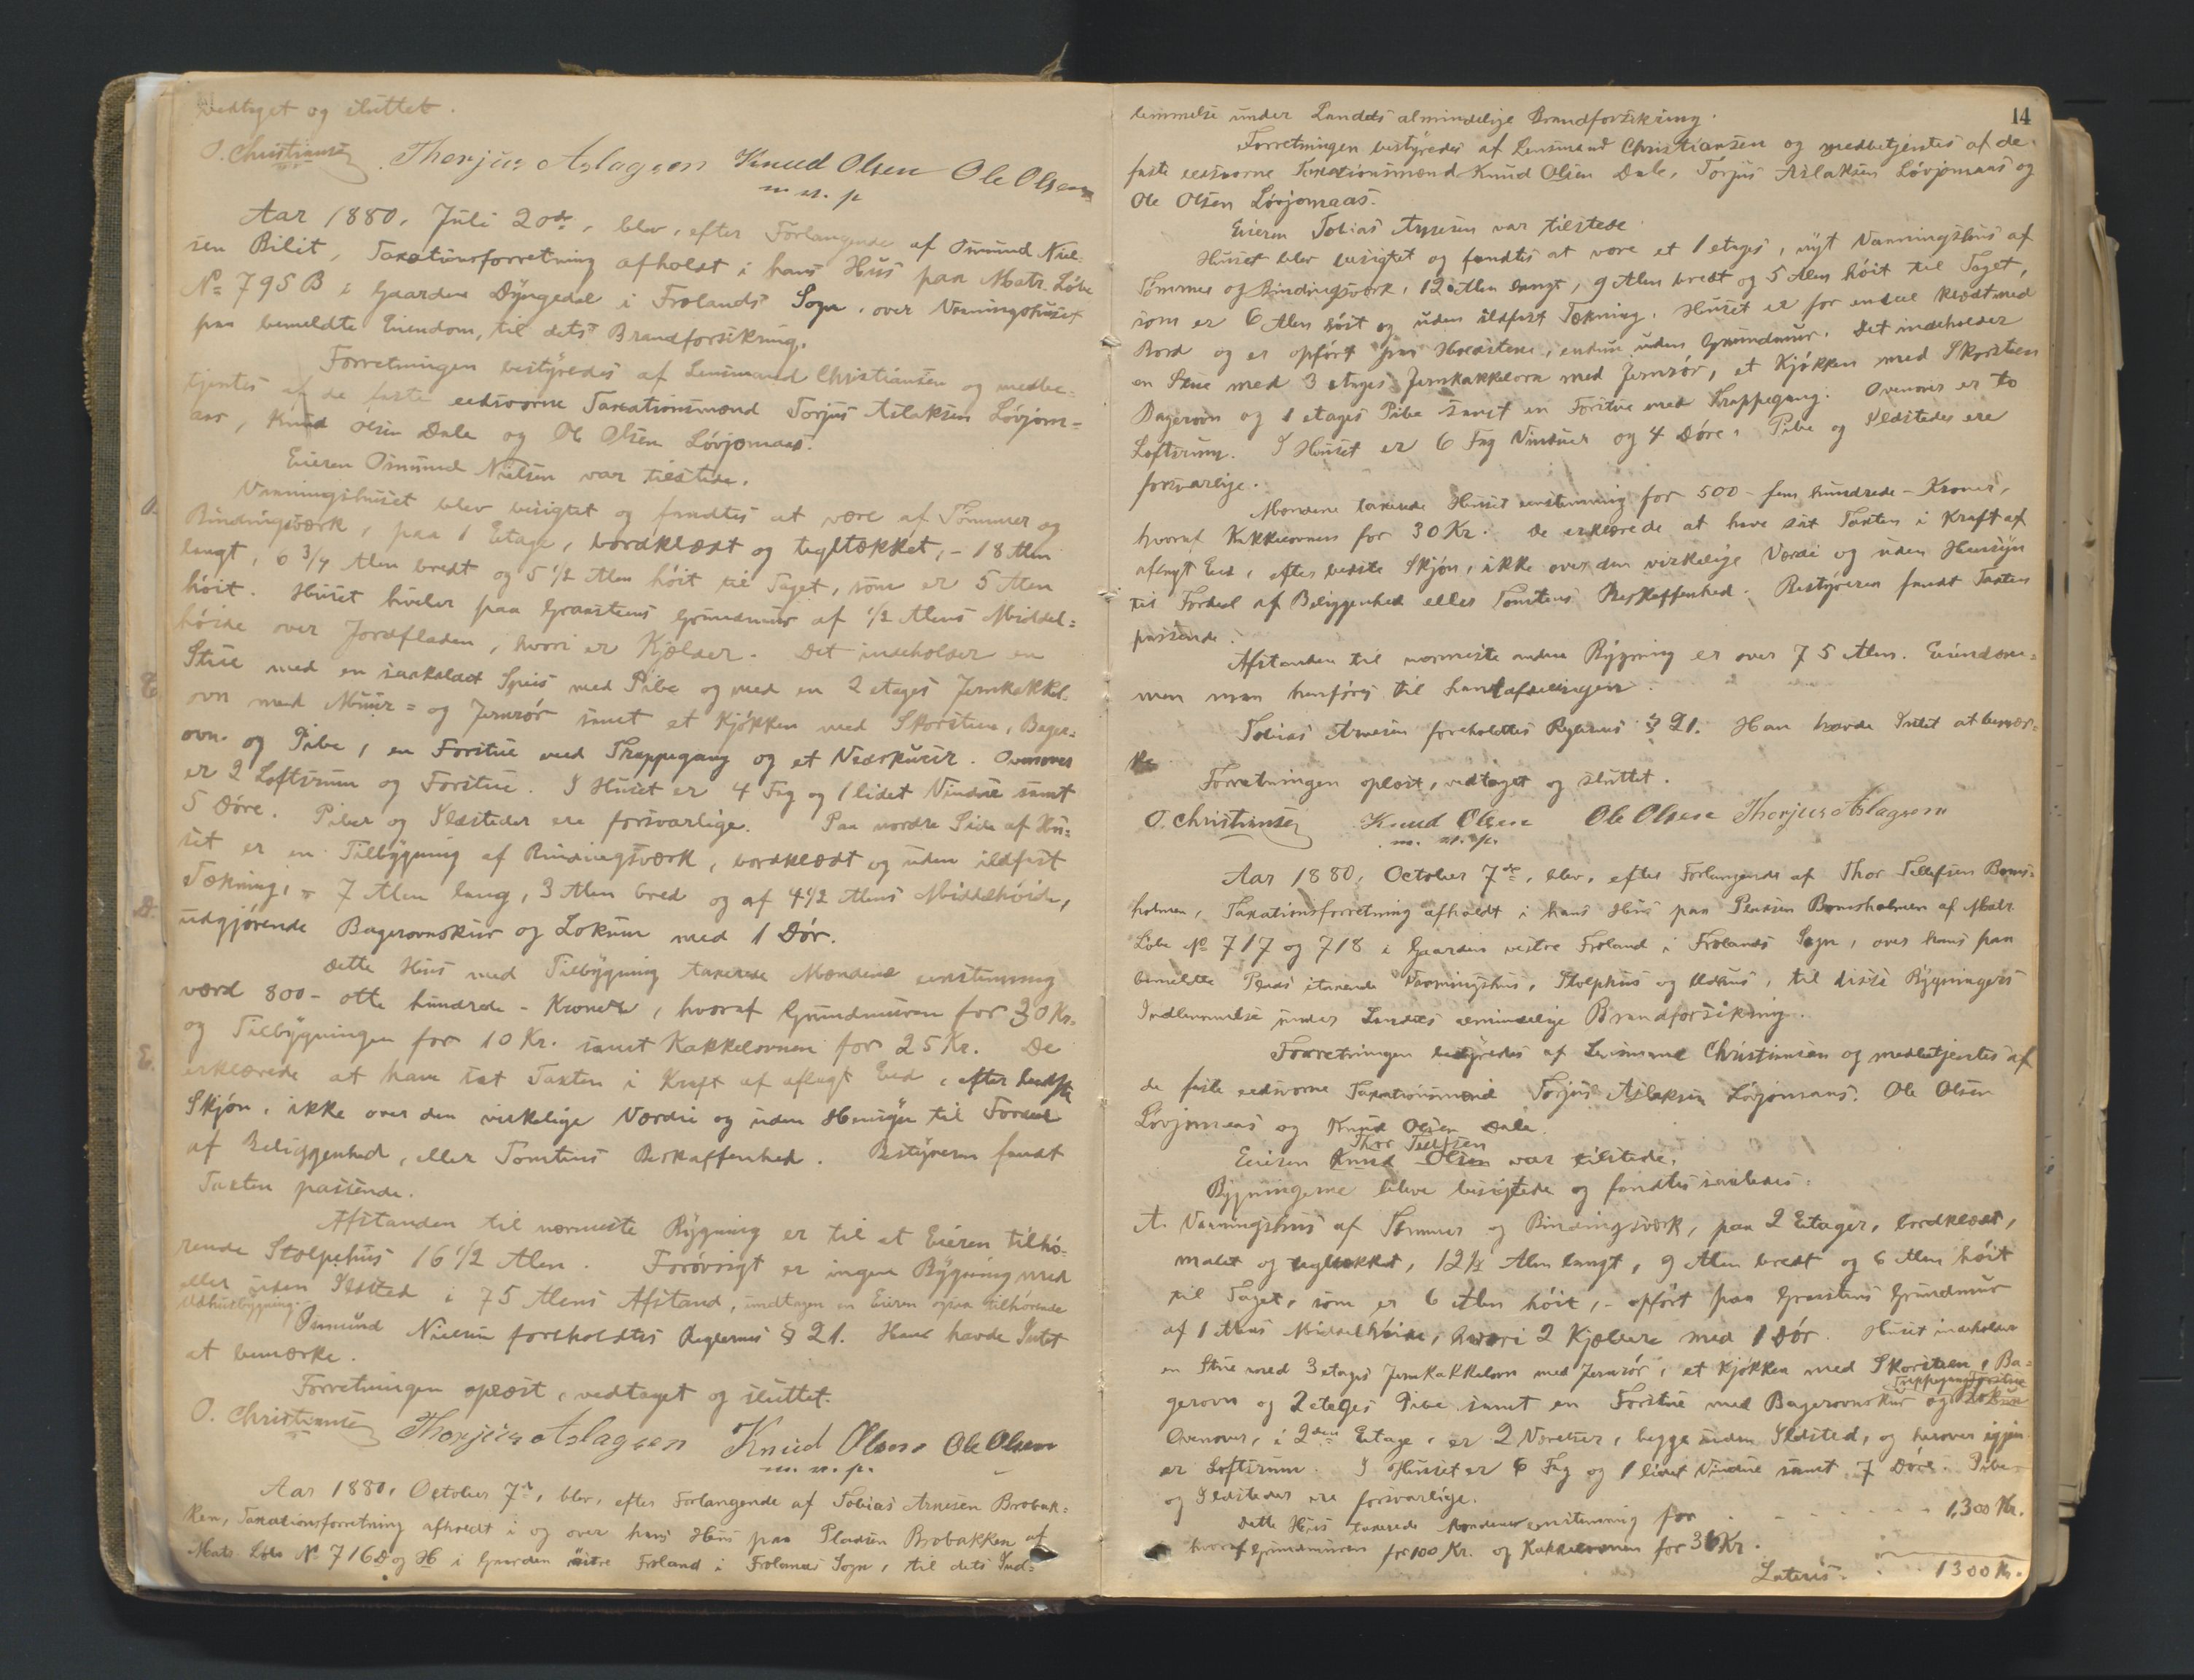 vedtaget og sluttet.
O. Christiansen Thorjus Aslagsen Knud Olsen Ole Olsen
m. n. p
Aar 1880, Juli 20de, blev, efter Forlangende af Osmund Niel-
sen Bilit, Taxationsforretning afholdt i hans Hus paa Matr. Löbe
No 795 B i Gaarden Dyngedal i Frolands Sogn, over Vaaningshuset
paa bemeldte Eiendom, til dets Brandforsikring.
Forretningen bestyredes af Lensmand Christiansen og medbe-
tjentes af de faste eedsvorne Taxationsmænd Torjus Aslaksen Lövjom=
aas, Knud Olsen Dale og Ole Olsen Lövjomaas.
Eieren Osmund Nielsen var tilstede.
Vaaningshuset blev besigtet og fandtes at være af Tømmer og
Bindingsværk, paa 1 Etage, bordklædt og tegltækket, - 18 Alen
langt, 6 3/4 Alen bredt og 5 1/2 Alen höit til Taget, som er 5 Alen
höit. Huset hviler paa Graastens Grundmur af 1/2 Alens Middel=
höide over Jordfladen, hvori er Kjælder. Det indeholder en
Stue med en saakaldt Spis med Pibe og med en 2 etages Jernkakkel-
ovn med Muur= og Jernrör samt et Kjökken med Skorsten, Bager=
ovn og Pibe, en Forstue med Trappegang og et Vedskuur. Ovenover
er 2 Loftsrum og Forstue. I Huset er 4 Fag og 1 lidet Vindue samt
5 Döre. Piber og Ildsteder ere forsvarlige. Paa nordre Side af Hu=
set er en Tilbygning af Bindingsværk, bordklædt og uden ildfast
Tækning, - 7 Alen lang, 3 Alen bred og af 4 1/2 Alens Middelhöide,
udgjörende Bagerovnskur og Lokum med 1 Dör.
Dette Hus med Tilbygning taxerede Mændene eenstemmig
værd 800 - otte hundrede - Kroner, hvoraf Grundmuren for 30 Kr.
og Tilbygningen for 10 Kr. samt Kakkelovnen for 25 Kr. De
erklærede at have sat Taxten i Kraft af aflagt Eed, efter bedste
Skjön, ikke over den virkelige Værdi og uden Hensyn til Fordeel
af Beliggenhed, eller Tomtens Beskaffenhed. Bestyreren fandt
Taxten passende.
Afstanden til nærmeste Bygning er til et Eieren tilhö-
rende Stolpehus 16 1/2 Alen. Forövrigt er ingen Bygning med
eller uden Ildsted i 75 Alens Afstand, undtagen en Eieren ogsaa tilhörende
Udhusbygning.
Osmund Nielsen foreholdtes Reglernes § 21. Han havde Intet
at bemærke.
Forretningen oplæst, vedtaget og sluttet.
O. Christiansen Thorjus Aslagsen Knud Olsen Ole Olsen
m. n. p.
Aar 1880, October 7de, blev, efter Forlangende af Tobias Arnesen Brobak=
ken, Taxationsforretning afholdt i og over hans Hus paa Pladsen Brobakken af
Matr. Löbe No 716 D og H i Gaarden östre Froland i Frolands Sogn, til dets Ind=
14
lemmelse under Landets almindelige Brandforsikring.
Forretningen bestyredes af Lensmand Christiansen og medbetjentes af de
faste eedsvorne Taxationsmænd Knud Olsen Dale, Torjus Aslaksen Lövjomaas og
Ole Olsen Lövjomaas.
Eieren Tobias Arnesen var tilstede.
Huset blev besigtet og fandtes at være et 1 etages, nyt Vaaningshus af
Tömmer og Bindingsværk, 12 Alen langt, 9 Alen bredt og 5 Alen höit til Taget,
som er 6 Alen höit og uden ildfast Tækning. Huset er for en deel klædt med
Bord og er opfört paa Hovedstene, endnu uden Grundmur. Det indeholder
en Stue med 3 etages Jernkakkelovn med Jernrör, et Kjökken med Skorsten
Bagerovn og 1 etages Pibe samt en Forstue med Trappegang. Ovenover er to
Loftsrum. I Huset er 6 Fag Vinduer og 4 Döre. Pibe og Ildsteder ere
forsvarlige.
Mændene taxerede Huset eenstemmig for 500 - fem hundrede - Kroner,
hvoraf Kakkelovnen for 30 Kr. De erklærede at have sat Taxten i Kraft af
aflagt Eed, efter bedste Skjön, ikke over den virkelige Værdi og uden Hensyn
til Fordeel af Beliggenhed eller Tomtens Beskaffenhed. Bestyreren fandt Taxten
passende.
Afstanden til nærmeste anden Bygning er over 75 Alen. Eiendom=
men maa henföres til Landafdelingen.
Tobias Arnesen foreholdtes Reglernes § 21. Han havde Intet at bemær=
ke.
Forretningen oplæst, vedtaget og sluttet.
O. Christiansen Knud Olsen Ole Olsen Thorjus Aslagsen
m. n. p.
Aar 1880, October 7de, blev, efter Forlangende af Thor Tellefsen Boms=
holmen, Taxationsforretning afholdt i hans Hus paa Pladsen Bomsholmen af Matr.
Löbe No 717 og 718 i Gaarden vestre Froland i Frolands Sogn, over hans paa
bemeldte Plads staaende Vaaningshus, Stolphus og Udhus, til disse Bygningers
Indlemmelse under Landets almindelige Brandforsikring.
Forretningen bestyredes af Lensmand Christiansen og medbetjentes af
de faste eedsvorne Taxationsmænd Torjus Aslaksen Lövjomaas, Ole Olsen
Lövjomaas og Knud Olsen Dale.
Thor Tellefsen
Eieren Knud Olsen var tilstede.
Bygningerne bleve besigtede og fandtes saaledes:
A. Vaaningshus af Tömmer og Bindingsværk, paa 2 Etager, bordklædt,
malet og tegltækket, 12 1/2 Alen langt, 9 Alen bredt og 6 Alen höit
til Taget, som er 6 Alen höit, - opfört paa Graastens Grundmur
af 1 Alens Middelhöide, hvori 2 Kjældere med 1 Dör. Huset indeholder
en Stue med 3 etages Jernkakkelovn med Jernrör, et Kjökken med Skorsten, Ba=
Trappegang Forstue
gerovn og 2 etages Pibe samt en Forstue med Bagerovnskur og Lokum
Ovenover, i 2den Etage, er 2 Værelser, begge uden Ildsted, og herover igjen
er Loftsrum. I Huset er 6 Fag og 1 lidet Vindue samt 7 Döre. Pibe
og Ildsteder ere forsvarlige.
Dette Hus taxerede Mændene eenstemmig for 1,300 Kr.
hvoraf Grundmuren for 100 Kr. og Kakkelovnen for 36 Kr.
Lateris 1300 Kr.